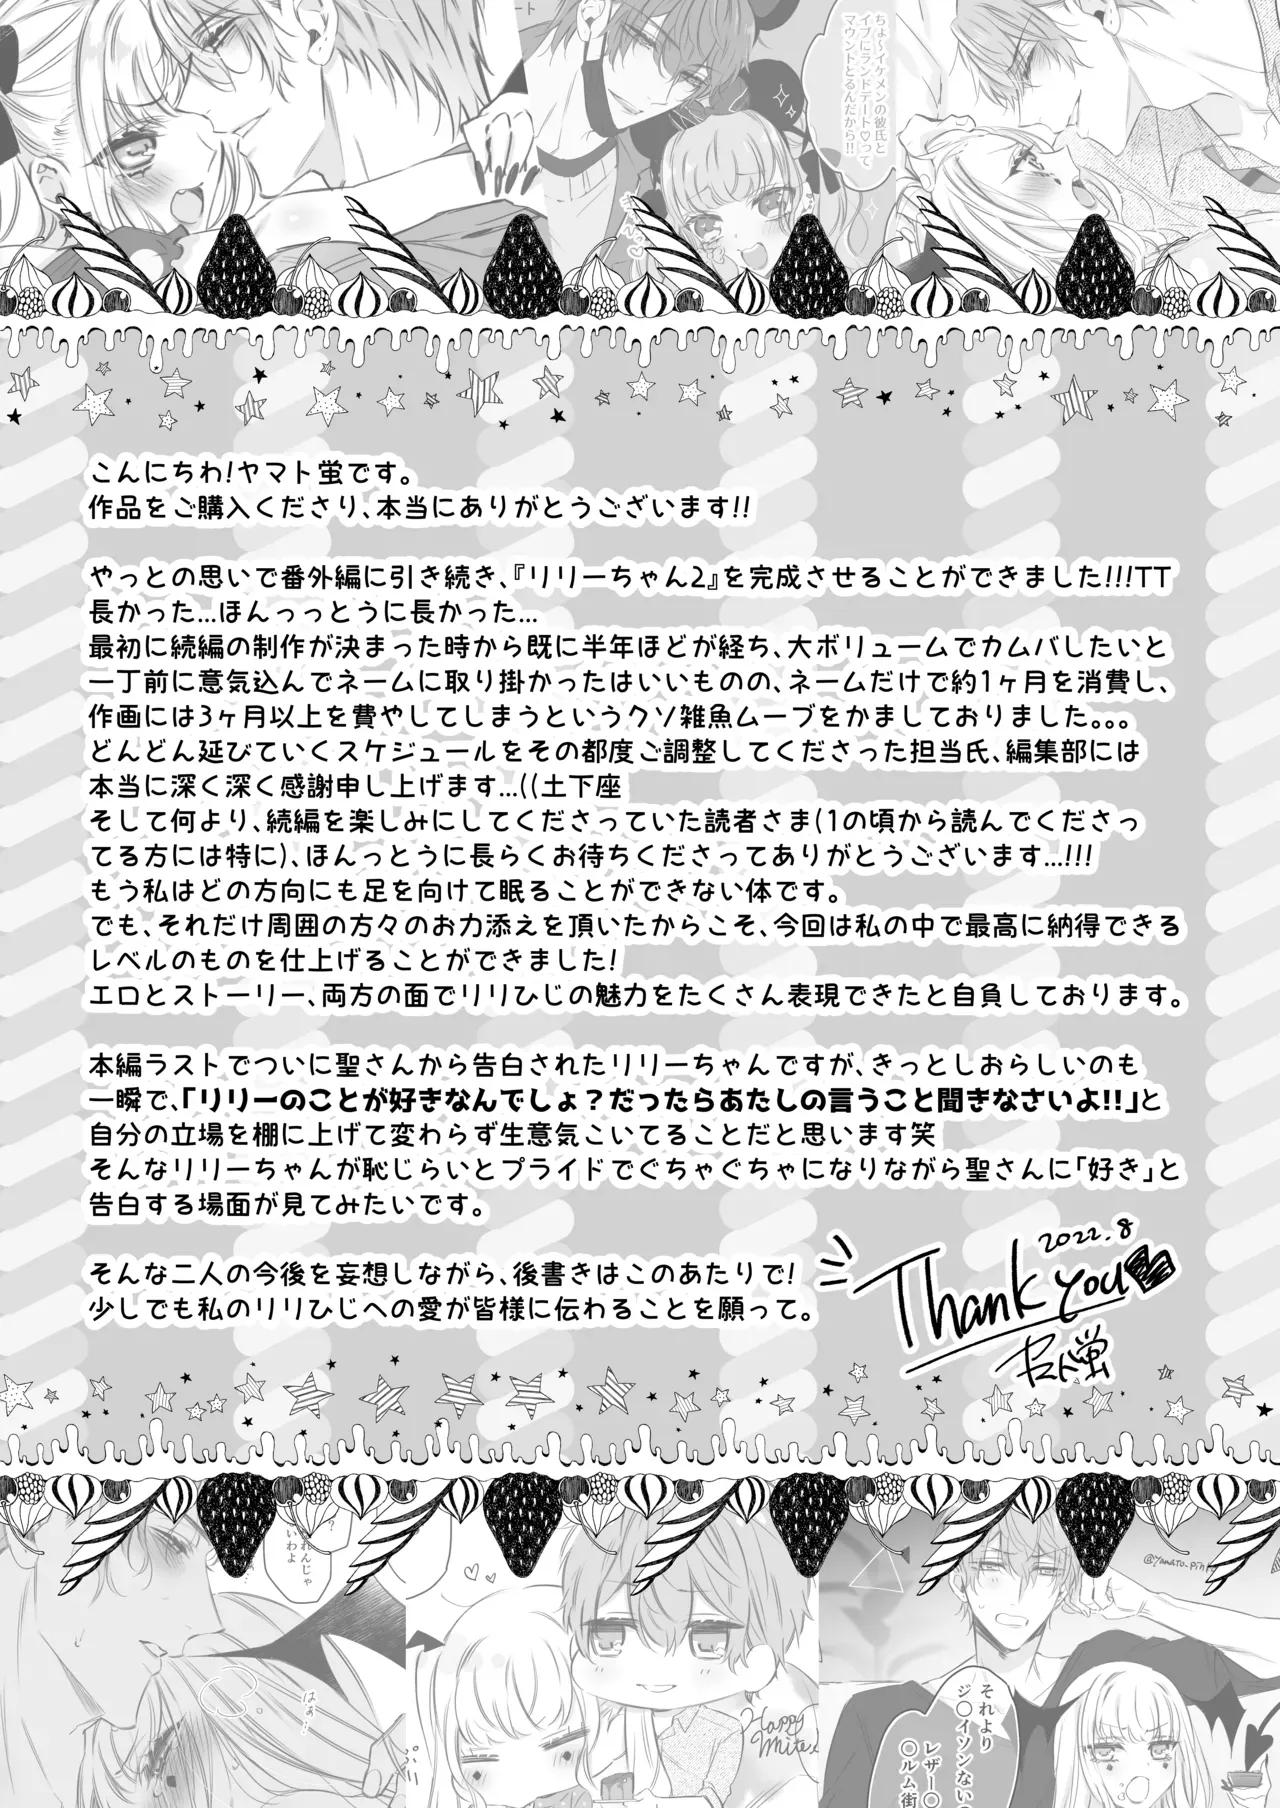 ート
ちょ〜イケメンの彼氏と
イブにランドデート♡って
マウントとるんだから!!
こんにちわ!ヤマト蛍です。
作品をご購入くださり、本当にありがとうございます!!
やっとの思いで番外編に引き続き、『リリーちゃん2』を完成させることができました!!!TT
長かった...ほんっっっとうに長かった...
最初に続編の制作が決まった時から既に半年ほどが経ち、大ボリュームでカムバしたいと
一丁前に意気込んでネームに取り掛かったはいいものの、ネームだけで約1ヶ月を消費し、
作画には3ヶ月以上を費やしてしまうというクソ雑魚ムーブをかましておりました。。。
どんどん延びていくスケジュールをその都度ご調整してくださった担当氏、編集部には
本当に深く深く感謝申し上げます...((土下座
そして何より、続編を楽しみにしてくださっていた読者さま(1の頃から読んでくださっ
てる方には特に)、ほんっとうに長らくお待ちくださってありがとうございます...!!!
もう私はどの方向にも足を向けて眠ることができない体です。
でも、それだけ周囲の方々のお力添えを頂いたからこそ、今回は私の中で最高に納得できる
レベルのものを仕上げることができました!
エロとストーリー、両方の面でリリひじの魅力をたくさん表現できたと自負しております。
本編ラストでついに聖さんから告白されたリリーちゃんですが、きっとしおらしいのも
一瞬で、「リリーのことが好きなんでしょ?だったらあたしの言うこと聞きなさいよ!!」と
自分の立場を棚に上げて変わらず生意気こいてることだと思います笑
そんなリリーちゃんが恥じらいとプライドでぐちゃぐちゃになりながら聖さんに「好き」と
告白する場面が見てみたいです。
そんな二人の今後を妄想しながら、後書きはこのあたりで!
少しでも私のリリひじへの愛が皆様に伝わることを願って。
2022.8
Thank you
ヤマト蛍
れんじゃ
いわよ
はぁ…
Happy
@yamato_pin
それより
ジ〇イソンない
レザー〇
〇ルム街